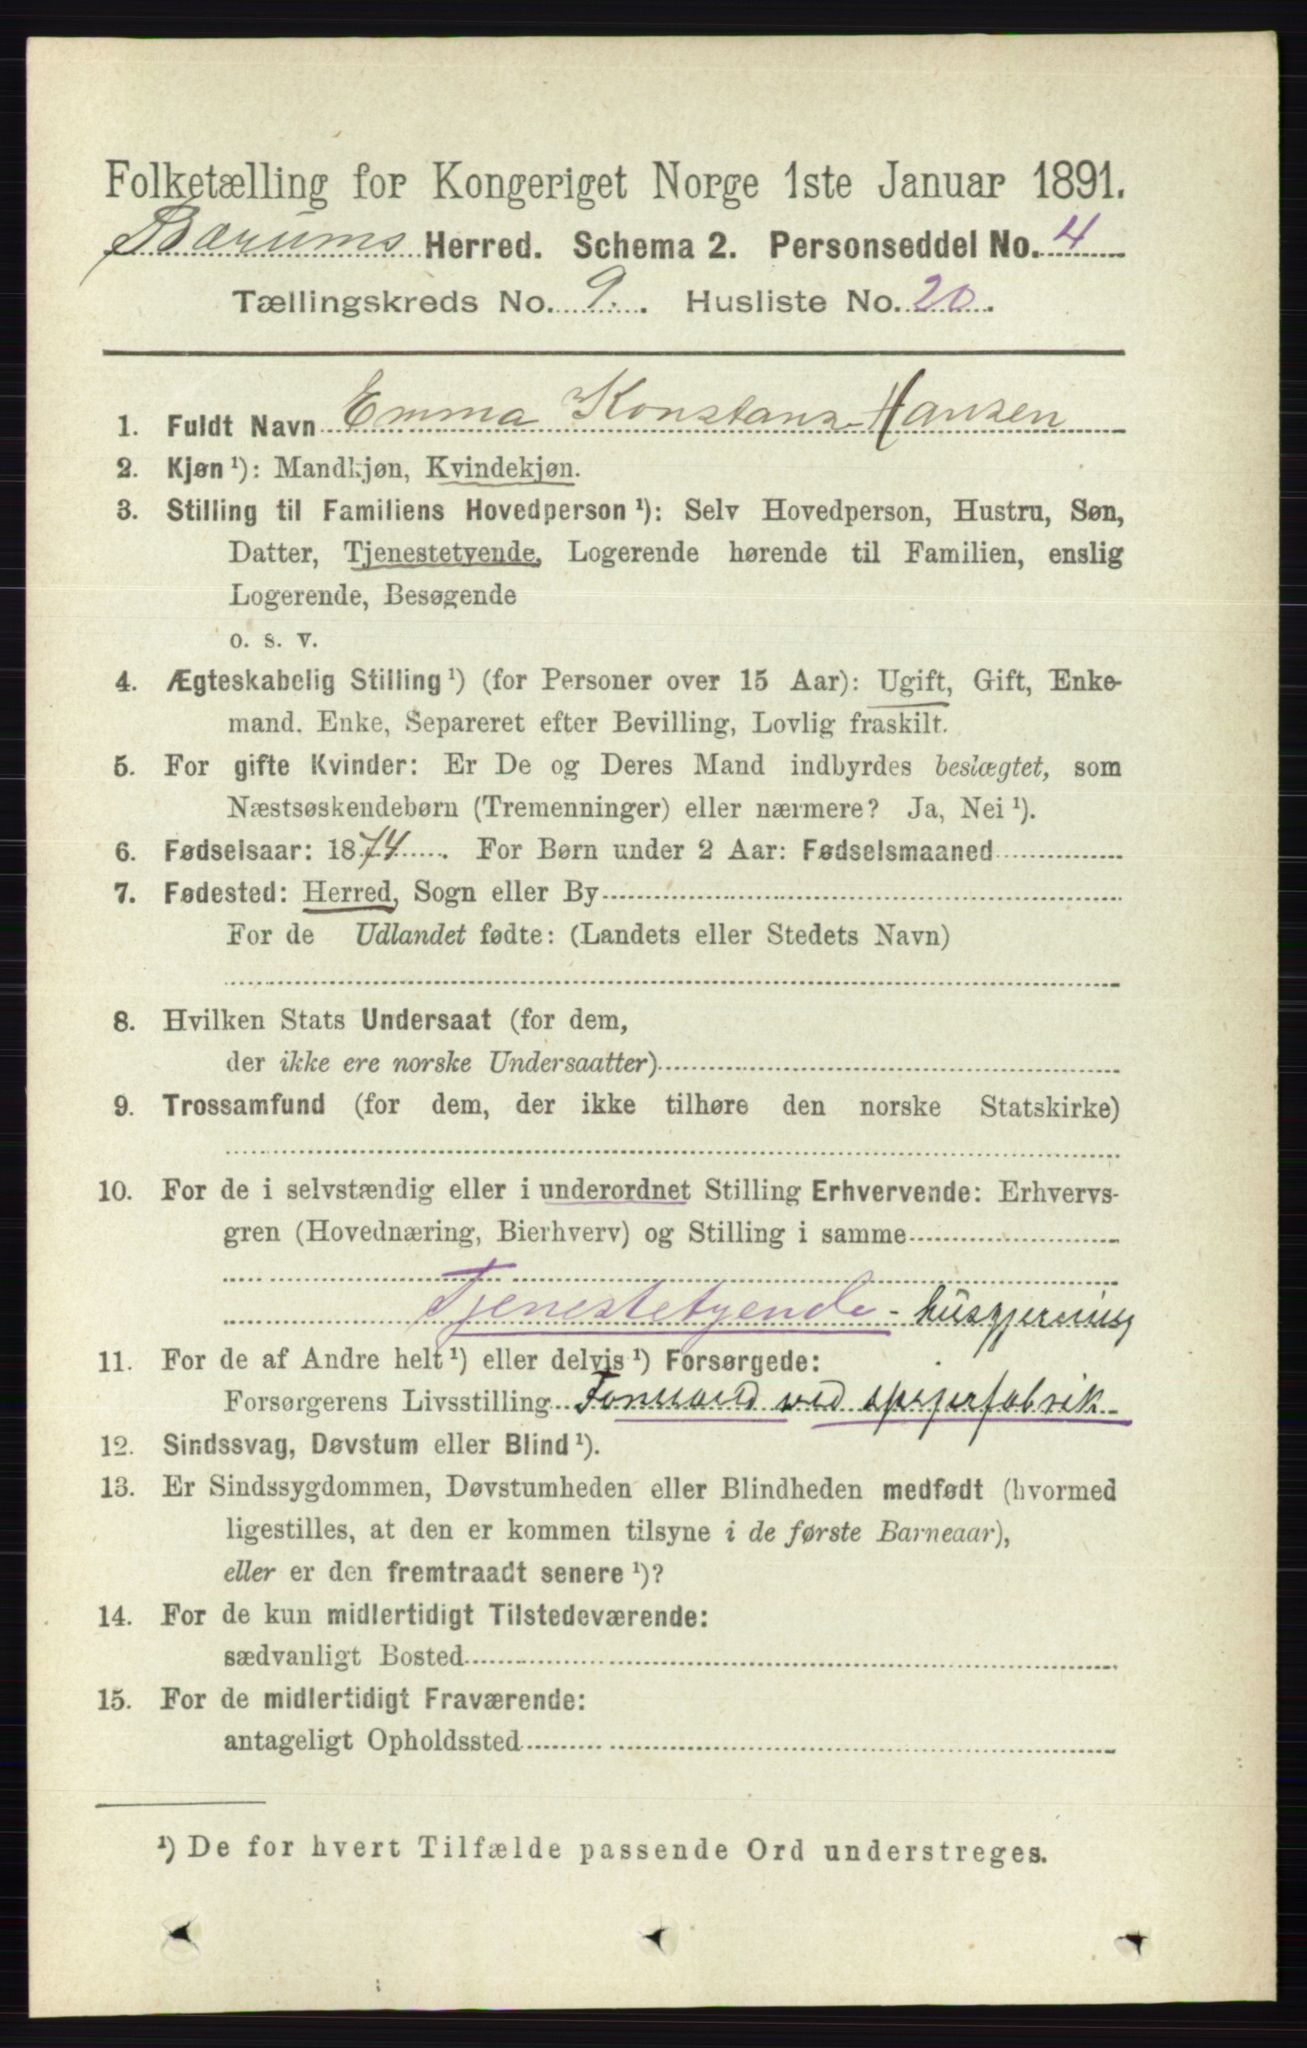 Folketælling for Kongeriget Norge 1ste Januar 1891.
Bærums Herred. Schema 2. Personseddel No. 4
Tællingskreds No. 9. Husliste No. 20.
1. Fuldt Navn Emma Konstanse Hansen
2. Kjøn ¹): Mandkjøn, Kvindekjøn.
3. Stilling til Familiens Hovedperson ¹): Selv Hovedperson, Hustru, Søn,
Datter, Tjenestetyende, Logerende hørende til Familien, enslig
Logerende, Besøgende
o. s. v.
4. Ægteskabelig Stilling ¹) (for Personer over 15 Aar): Ugift, Gift, Enke-
mand, Enke, Separeret efter Bevilling, Lovlig fraskilt.
5. For gifte Kvinder: Er De og Deres Mand indbyrdes beslægtet, som
Næstsøskendebørn (Tremenninger) eller nærmere? Ja, Nei ¹).
6. Fødselsaar: 1874. For Børn under 2 Aar: Fødselsmaaned
7. Fødested: Herred, Sogn eller By
For de Udlandet fødte: (Landets eller Stedets Navn)
8. Hvilken Stats Undersaat (for dem,
der ikke ere norske Undersaatter)
9. Trossamfund (for dem, der ikke tilhøre den norske Statskirke)
10. For de i selvstændig eller i underordnet Stilling Erhvervende: Erhvervs-
gren (Hovednæring, Bierhverv) og Stilling i samme
Tjenestetyende - husgjerning
11. For de af Andre helt ¹) eller delvis ¹) Forsørgede:
Forsørgerens Livsstilling ved spigerfabrik
12. Sindssvag, Døvstum eller Blind ¹).
13. Er Sindssygdommen, Døvstumheden eller Blindheden medfødt (hvormed
ligestilles, at den er kommen tilsyne i de første Barneaar),
eller er den fremtraadt senere ¹)?
14. For de kun midlertidigt Tilstedeværende:
sædvanligt Bosted
15. For de midlertidigt Fraværende:
antageligt Opholdssted
¹) De for hvert Tilfælde passende Ord understreges.